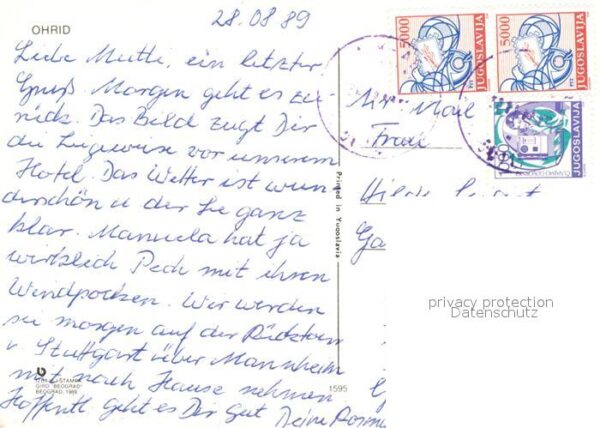 28.08.89
OHRID
Liebe Mutti, ein letzter
Gruß. Morgen geht es zu-
rück. Das Bild zeigt Dir
die Liegewiese vor unserem
Hotel. Das Wetter ist wun-
derschön u der See ganz
klar. Manuela hat ja
wirklich Pech mit ihren
Windpocken. Wir werden
sie morgen auf der Rückfahrt
v Stuttgart über Mannheim
mit nach Hause nehmen
Hoffentl. geht es Dir gut. Deine
Printed in Yugoslavia
1595
BEOGRAD, 1989
5000
JUGOSLAVIJA
5000
JUGOSLAVIJA
JUGOSLAVIJA
Air Mail
Frau
privacy protection
Datenschutz